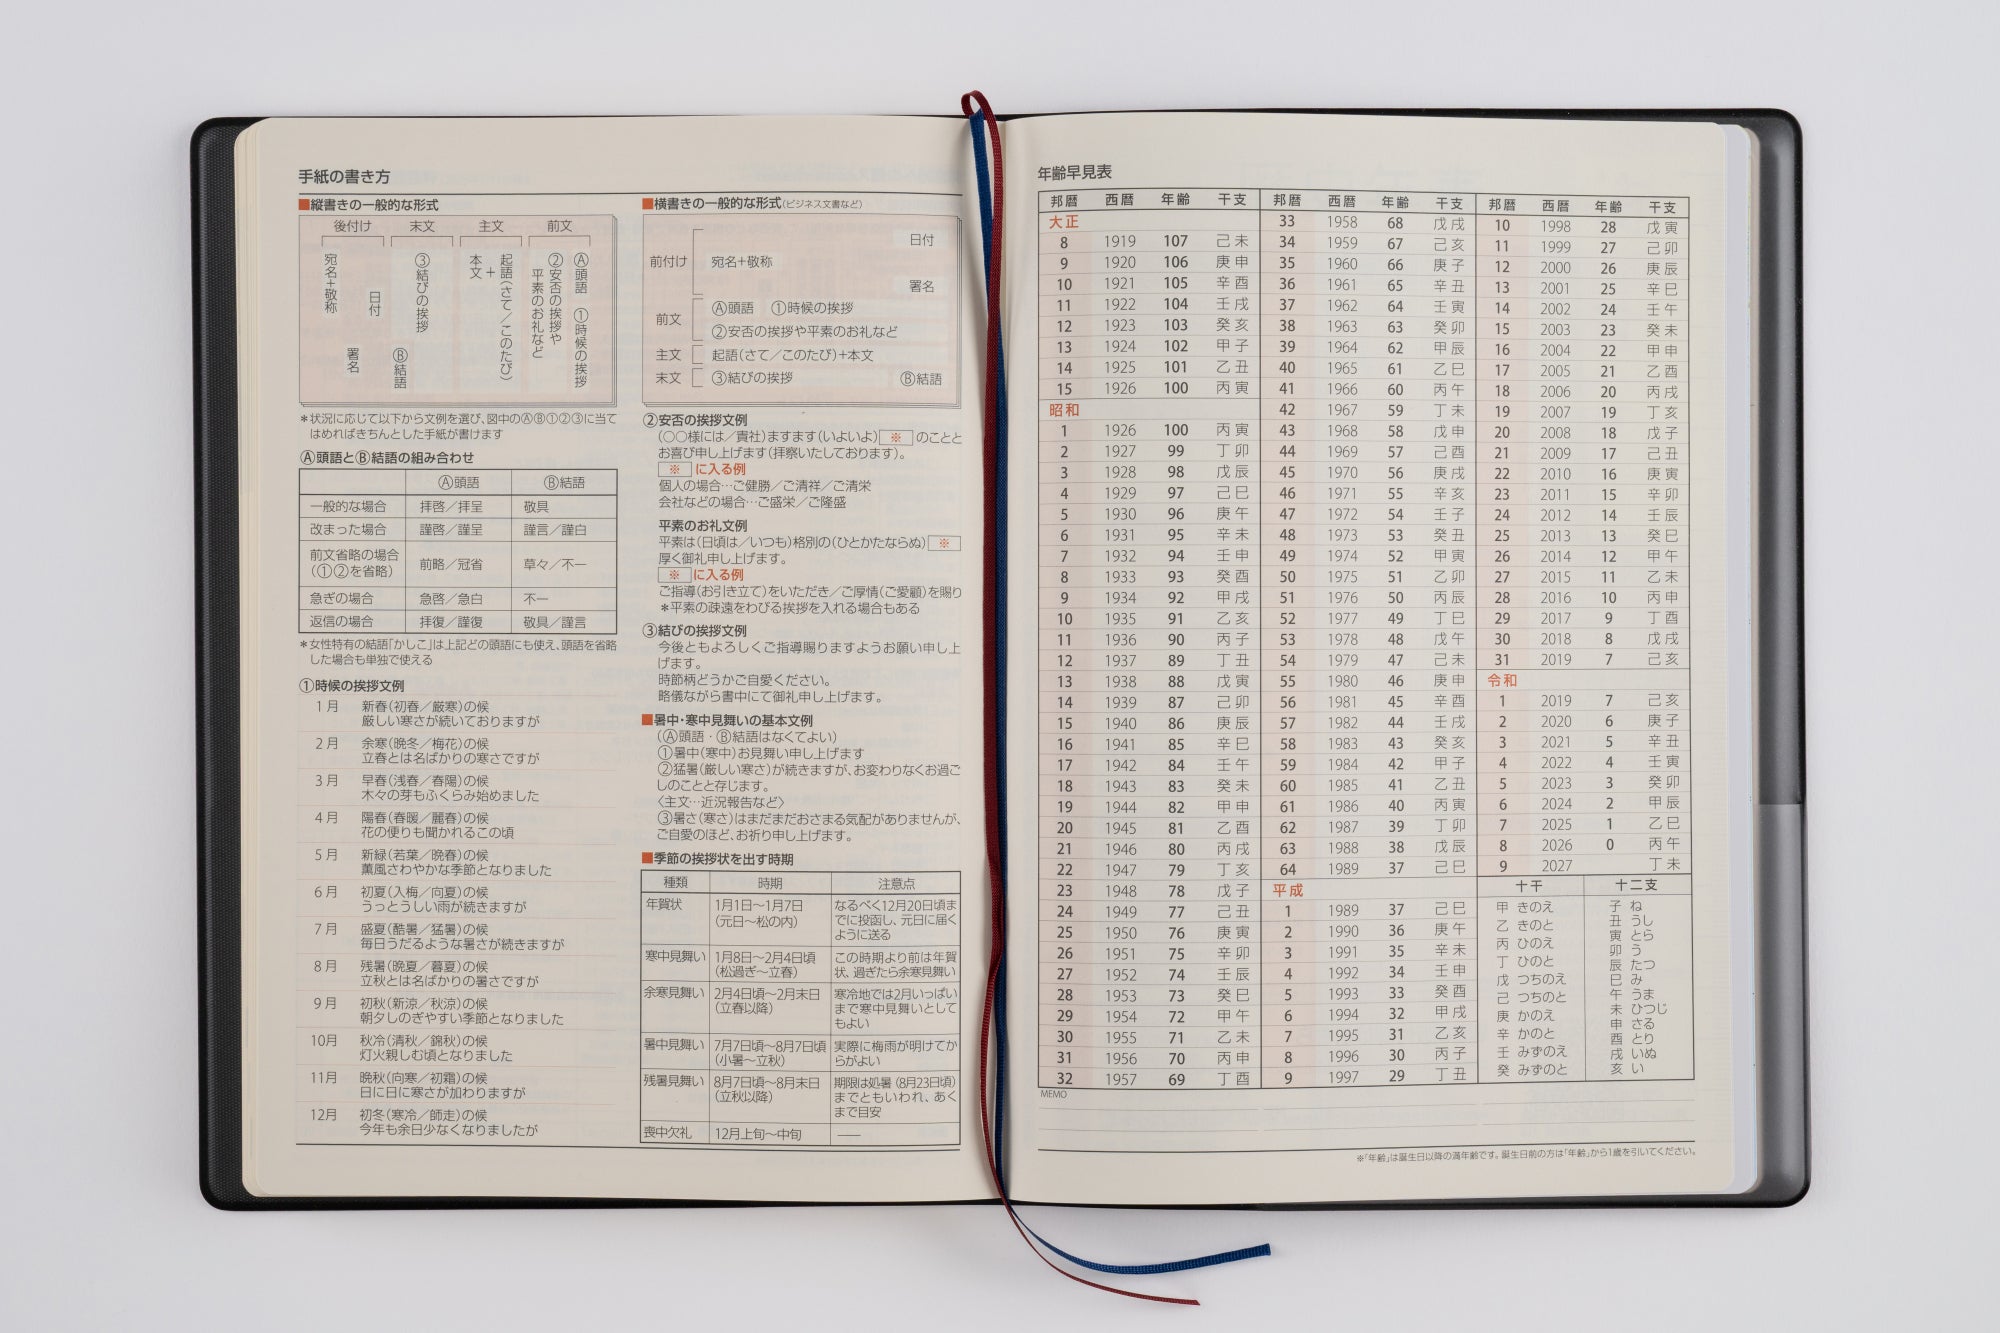 手紙の書き方
■縦書きの一般的な形式
後付け 末文 主文 前文
Ⓐ頭語 ①時候の挨拶
②安否の挨拶や
平素のお礼など
起語(さて／このたび)
＋
本文
③結びの挨拶
Ⓑ結語
日付
署名
宛名＋敬称
＊状況に応じて以下から文例を選び、図中のⒶⒷ①②③に当て
はめればきちんとした手紙が書けます
Ⓐ頭語とⒷ結語の組み合わせ
Ⓐ頭語 Ⓑ結語
一般的な場合 拝啓／拝呈 敬具
改まった場合 謹啓／謹呈 謹言／謹白
前文省略の場合
(①②を省略) 前略／冠省 草々／不一
急ぎの場合 急啓／急白 不一
返信の場合 拝復／謹復 敬具／謹言
＊女性特有の結語「かしこ」は上記どの頭語にも使え、頭語を省略
した場合も単独で使える
①時候の挨拶文例
1月 新春(初春／厳寒)の候
厳しい寒さが続いておりますが
2月 余寒(晩冬／梅花)の候
立春とは名ばかりの寒さですが
3月 早春(浅春／春陽)の候
木々の芽もふくらみ始めました
4月 陽春(春暖／麗春)の候
花の便りも聞かれるこの頃
5月 新緑(若葉／晩春)の候
薫風さわやかな季節となりました
6月 初夏(入梅／向夏)の候
うっとうしい雨が続きますが
7月 盛夏(酷暑／猛暑)の候
毎日うだるような暑さが続きますが
8月 残暑(晩夏／暮夏)の候
立秋とは名ばかりの暑さですが
9月 初秋(新涼／秋涼)の候
朝夕しのぎやすい季節となりました
10月 秋冷(清秋／錦秋)の候
灯火親しむ頃となりました
11月 晩秋(向寒／初霜)の候
日に日に寒さが加わりますが
12月 初冬(寒冷／師走)の候
今年も余日少なくなりましたが
■横書きの一般的な形式(ビジネス文書など)
日付
前付け 宛名+敬称
署名
前文 Ⓐ頭語 ①時候の挨拶
②安否の挨拶や平素のお礼など
主文 起語(さて／このたび)+本文
末文 ③結びの挨拶 Ⓑ結語
②安否の挨拶文例
(○○様には／貴社)ますます(いよいよ) ※ のことと
お喜び申し上げます(拝察いたしております)。
※ に入る例
個人の場合…ご健勝／ご清祥／ご清栄
会社などの場合…ご盛栄／ご隆盛
平素のお礼文例
平素は(日頃は／いつも)格別の(ひとかたならぬ) ※
厚く御礼申し上げます。
※ に入る例
ご指導(お引き立て)をいただき／ご厚情(ご愛顧)を賜り
＊平素の疎遠をわびる挨拶を入れる場合もある
③結びの挨拶文例
今後ともよろしくご指導賜りますようお願い申し上
げます。
時節柄どうかご自愛ください。
略儀ながら書中にて御礼申し上げます。
■暑中・寒中見舞いの基本文例
(Ⓐ頭語・Ⓑ結語はなくてよい)
①暑中(寒中)お見舞い申し上げます
②猛暑(厳しい寒さ)が続きますが、お変わりなくお過ご
しのことと存じます。
〈主文…近況報告など〉
③暑さ(寒さ)はまだまだおさまる気配がありませんが、
ご自愛のほど、お祈り申し上げます。
■季節の挨拶状を出す時期
種類 時期 注意点
年賀状 1月1日〜1月7日 なるべく12月20日頃ま
(元日〜松の内) でに投函し、元日に届く
ように送る
寒中見舞い 1月8日〜2月4日頃 この時期より前は年賀
(松過ぎ〜立春) 状、過ぎたら余寒見舞い
余寒見舞い 2月4日頃〜2月末日 寒冷地では2月いっぱい
(立春以降) まで寒中見舞いとして
もよい
暑中見舞い 7月7日頃〜8月7日頃 実際に梅雨が明けてか
(小暑〜立秋) らがよい
残暑見舞い 8月7日頃〜8月末日 期限は処暑(8月23日頃)
(立秋以降) までともいわれ、あく
まで目安
喪中欠礼 12月上旬〜中旬 ——
年齢早見表
邦暦 西暦 年齢 干支
大正
8 1919 107 己未
9 1920 106 庚申
10 1921 105 辛酉
11 1922 104 壬戌
12 1923 103 癸亥
13 1924 102 甲子
14 1925 101 乙丑
15 1926 100 丙寅
昭和
1 1926 100 丙寅
2 1927 99 丁卯
3 1928 98 戊辰
4 1929 97 己巳
5 1930 96 庚午
6 1931 95 辛未
7 1932 94 壬申
8 1933 93 癸酉
9 1934 92 甲戌
10 1935 91 乙亥
11 1936 90 丙子
12 1937 89 丁丑
13 1938 88 戊寅
14 1939 87 己卯
15 1940 86 庚辰
16 1941 85 辛巳
17 1942 84 壬午
18 1943 83 癸未
19 1944 82 甲申
20 1945 81 乙酉
21 1946 80 丙戌
22 1947 79 丁亥
23 1948 78 戊子
24 1949 77 己丑
25 1950 76 庚寅
26 1951 75 辛卯
27 1952 74 壬辰
28 1953 73 癸巳
29 1954 72 甲午
30 1955 71 乙未
31 1956 70 丙申
32 1957 69 丁酉
邦暦 西暦 年齢 干支
33 1958 68 戊戌
34 1959 67 己亥
35 1960 66 庚子
36 1961 65 辛丑
37 1962 64 壬寅
38 1963 63 癸卯
39 1964 62 甲辰
40 1965 61 乙巳
41 1966 60 丙午
42 1967 59 丁未
43 1968 58 戊申
44 1969 57 己酉
45 1970 56 庚戌
46 1971 55 辛亥
47 1972 54 壬子
48 1973 53 癸丑
49 1974 52 甲寅
50 1975 51 乙卯
51 1976 50 丙辰
52 1977 49 丁巳
53 1978 48 戊午
54 1979 47 己未
55 1980 46 庚申
56 1981 45 辛酉
57 1982 44 壬戌
58 1983 43 癸亥
59 1984 42 甲子
60 1985 41 乙丑
61 1986 40 丙寅
62 1987 39 丁卯
63 1988 38 戊辰
64 1989 37 己巳
平成
1 1989 37 己巳
2 1990 36 庚午
3 1991 35 辛未
4 1992 34 壬申
5 1993 33 癸酉
6 1994 32 甲戌
7 1995 31 乙亥
8 1996 30 丙子
9 1997 29 丁丑
邦暦 西暦 年齢 干支
10 1998 28 戊寅
11 1999 27 己卯
12 2000 26 庚辰
13 2001 25 辛巳
14 2002 24 壬午
15 2003 23 癸未
16 2004 22 甲申
17 2005 21 乙酉
18 2006 20 丙戌
19 2007 19 丁亥
20 2008 18 戊子
21 2009 17 己丑
22 2010 16 庚寅
23 2011 15 辛卯
24 2012 14 壬辰
25 2013 13 癸巳
26 2014 12 甲午
27 2015 11 乙未
28 2016 10 丙申
29 2017 9 丁酉
30 2018 8 戊戌
31 2019 7 己亥
令和
1 2019 7 己亥
2 2020 6 庚子
3 2021 5 辛丑
4 2022 4 壬寅
5 2023 3 癸卯
6 2024 2 甲辰
7 2025 1 乙巳
8 2026 0 丙午
9 2027 丁未
十干
甲 きのえ
乙 きのと
丙 ひのえ
丁 ひのと
戊 つちのえ
己 つちのと
庚 かのえ
辛 かのと
壬 みずのえ
癸 みずのと
十二支
子 ね
丑 うし
寅 とら
卯 う
辰 たつ
巳 み
午 うま
未 ひつじ
申 さる
酉 とり
戌 いぬ
亥 い
MEMO
※「年齢」は誕生日以降の満年齢です。誕生日前の方は「年齢」から1歳を引いてください。